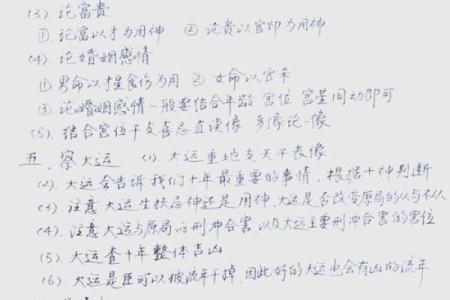 (3). 论富贵
①. 论富以才为用神 ② 论贵以官印为用神
(4). 论婚姻感情
① 男命以才星食伤为用 ② 女命以官杀
③. 论婚姻感情一般要结合年龄 宫位 宫星同动即可
(5). 结合宫位干支喜忌直读像 多像论一像
五. 察大运 (1). 大运重地支天干表像
(2). 大运会告诉我们十年最重要的事情, 根据十神判断
(3). 注意大运生扶忌神还是用神. 大运是否改变原局的从与不从
(4). 注意大运与原局的刑冲合害, 以及大运主要刑冲合害的宫位
(5). 大运查十年整体吉凶
(6). 大运是可以被流年干掉, 因此好的大运也会有凶的流年